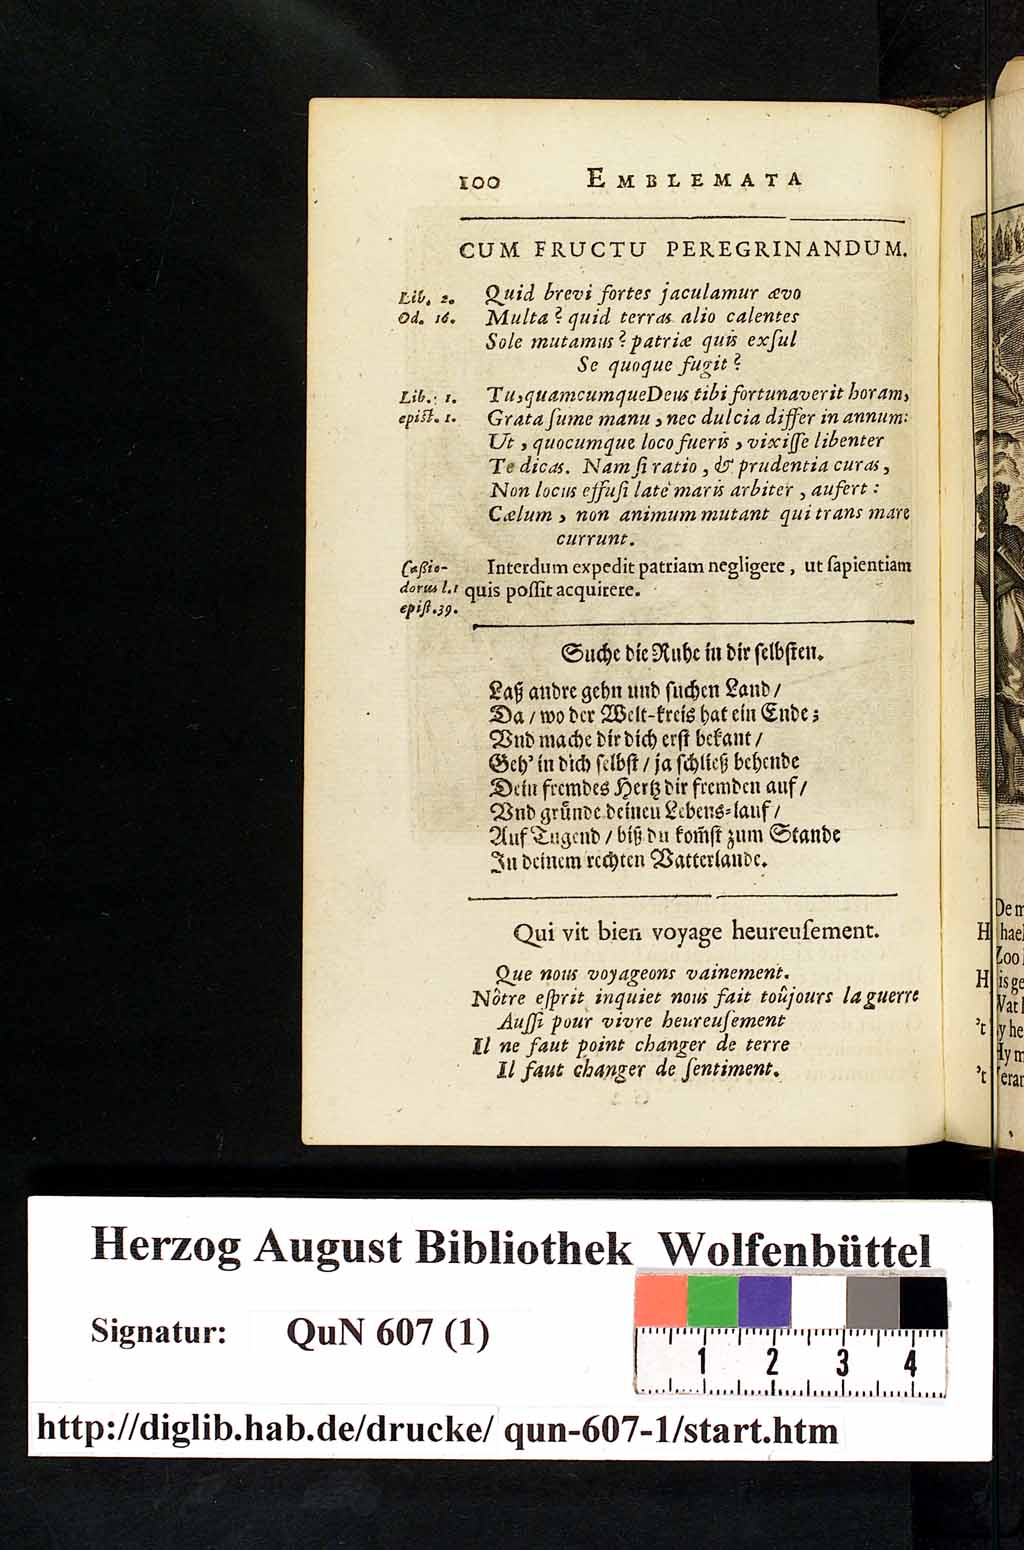 100 EMBLEMATA
CUM FRUCTU PEREGRINANDUM.
Lib. 2. Quid brevi fortes jaculamur ævo
Od. 16. Multa? quid terras alio calentes
Sole mutamus? patriæ quis exſul
Se quoque fugit?
Lib. 1. Tu, quamcumque Deus tibi fortunaverit horam,
epiſt. 1. Grata ſume manu, nec dulcia differ in annum:
Ut, quocumque loco fueris, vixiſſe libenter
Te dicas. Nam ſi ratio, & prudentia curas,
Non locus effuſi latè maris arbiter, aufert:
Cælum, non animum mutant qui trans mare
currunt.
Caßio- Interdum expedit patriam negligere, ut ſapientiam
dorus l.1 quis poſſit acquirere.
epiſt. 39.
Suche die Ruhe in dir ſelbſten.
Laß andre gehn und ſuchen Land/
Da/ wo der Welt-kreis hat ein Ende;
Vnd mache dir dich erſt bekant/
Geh' in dich ſelbſt/ ja ſchließ behende
Dein fremdes Hertz dir fremden auf/
Vnd gruͤnde deinen Lebens-lauf/
Auf Tugend/ biß du kom̃ſt zum Stande
In deinem rechten Vatterlande.
Qui vit bien voyage heureuſement.
Que nous voyageons vainement.
Nôtre eſprit inquiet nous fait toûjours la guerre
Auſſi pour vivre heureuſement
Il ne faut point changer de terre
Il faut changer de ſentiment.
Herzog August Bibliothek Wolfenbüttel
Signatur: QuN 607 (1)
1 2 3 4
http://diglib.hab.de/drucke/ qun-607-1/start.htm